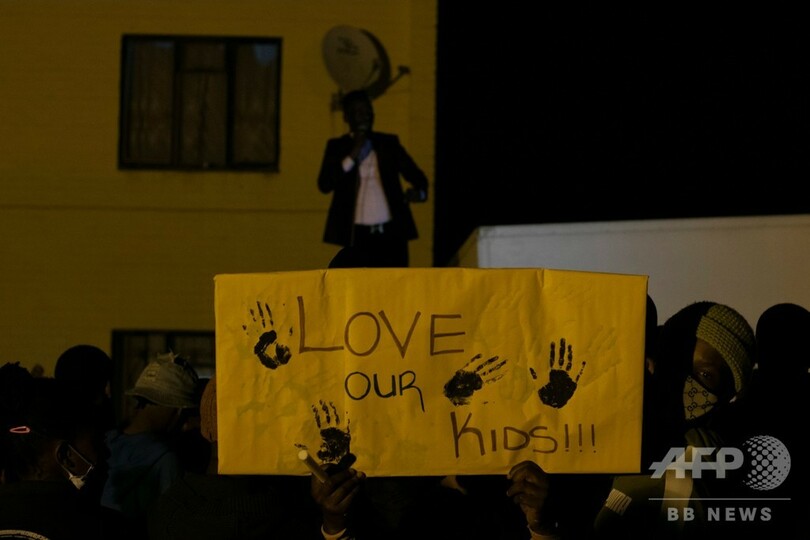 LOVE
OUR
KIDS!!!
AFP
BB NEWS